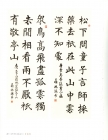 松下問童子言師採
藥去只在此山中雲
深不知處
眾鳥高飛盡孤雲獨
去閒相看兩不厭只
有敬亭山